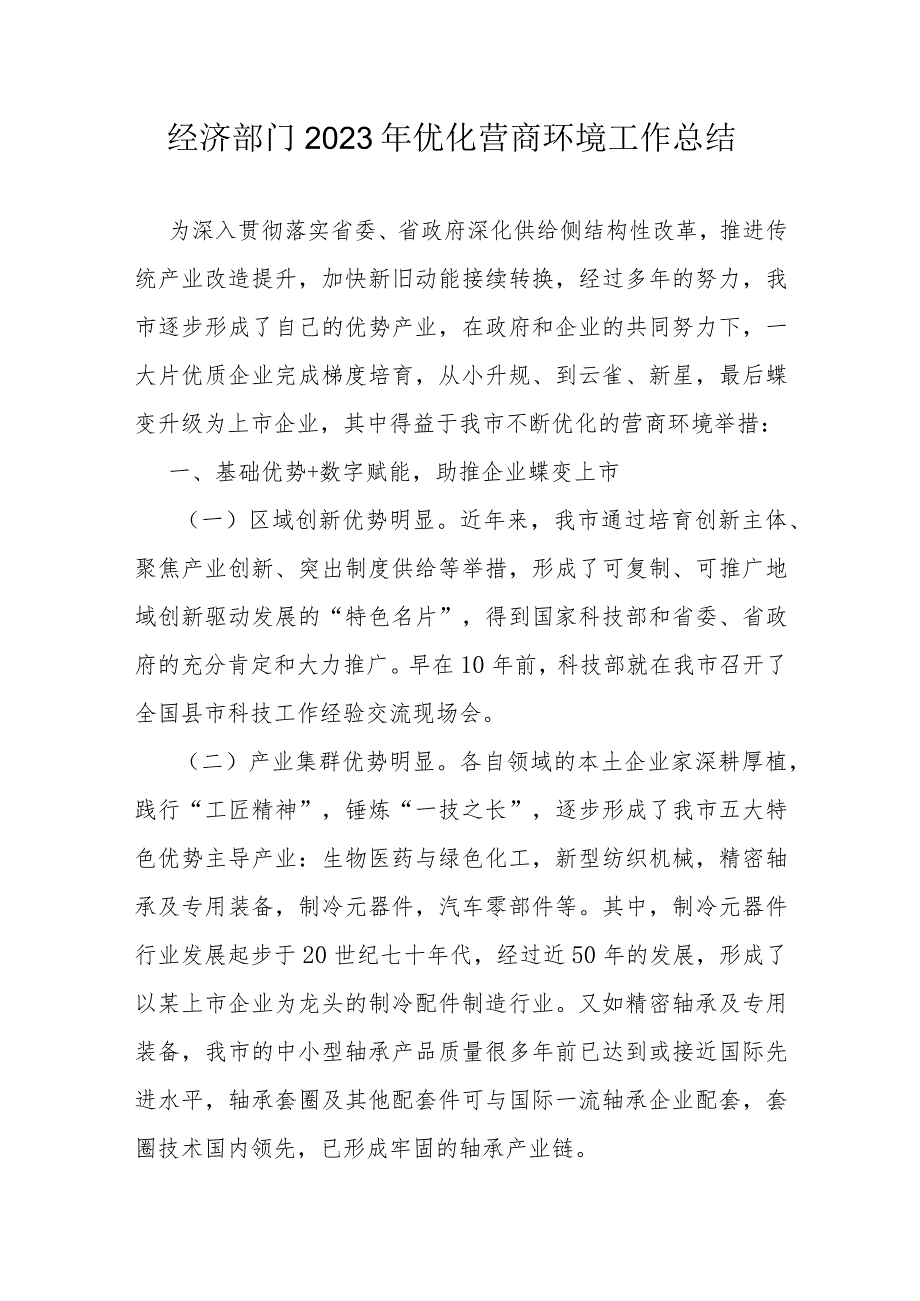 经济部门2023年优化营商环境工作总结
为深入贯彻落实省委、省政府深化供给侧结构性改革，推进传
统产业改造提升，加快新旧动能接续转换，经过多年的努力，我
市逐步形成了自己的优势产业，在政府和企业的共同努力下，一
大片优质企业完成梯度培育，从小升规、到云雀、新星，最后蝶
变升级为上市企业，其中得益于我市不断优化的营商环境举措：
一、基础优势+数字赋能，助推企业蝶变上市
（一）区域创新优势明显。近年来，我市通过培育创新主体、
聚焦产业创新、突出制度供给等举措，形成了可复制、可推广地
域创新驱动发展的“特色名片”，得到国家科技部和省委、省政
府的充分肯定和大力推广。早在10年前，科技部就在我市召开了
全国县市科技工作经验交流现场会。
（二）产业集群优势明显。各自领域的本土企业家深耕厚植，
践行“工匠精神”，锤炼“一技之长”，逐步形成了我市五大特
色优势主导产业：生物医药与绿色化工，新型纺织机械，精密轴
承及专用装备，制冷元器件，汽车零部件等。其中，制冷元器件
行业发展起步于20世纪七十年代，经过近50年的发展，形成了
以某上市企业为龙头的制冷配件制造行业。又如精密轴承及专用
装备，我市的中小型轴承产品质量很多年前已达到或接近国际先
进水平，轴承套圈及其他配套件可与国际一流轴承企业配套，套
圈技术国内领先，已形成牢固的轴承产业链。